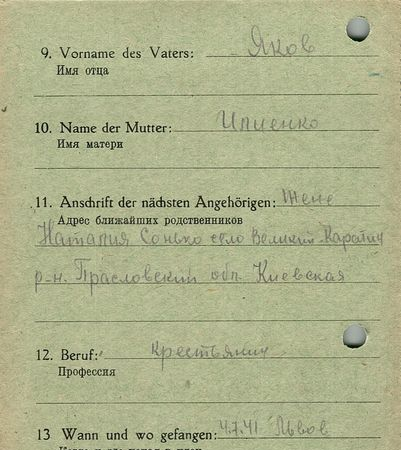 9. Vorname des Vaters: Яков
Имя отца
10. Name der Mutter: Ипиенко
Имя матери
11. Anschrift der nächsten Angehörigen: Жене
Адрес ближайших родственников
Наталия Сонько село Великий Каратин
р-н. Прасловский обл. Киевская
12. Beruf: крестьянин
Профессия
13 Wann und wo gefangen: 4.7.41 Львов